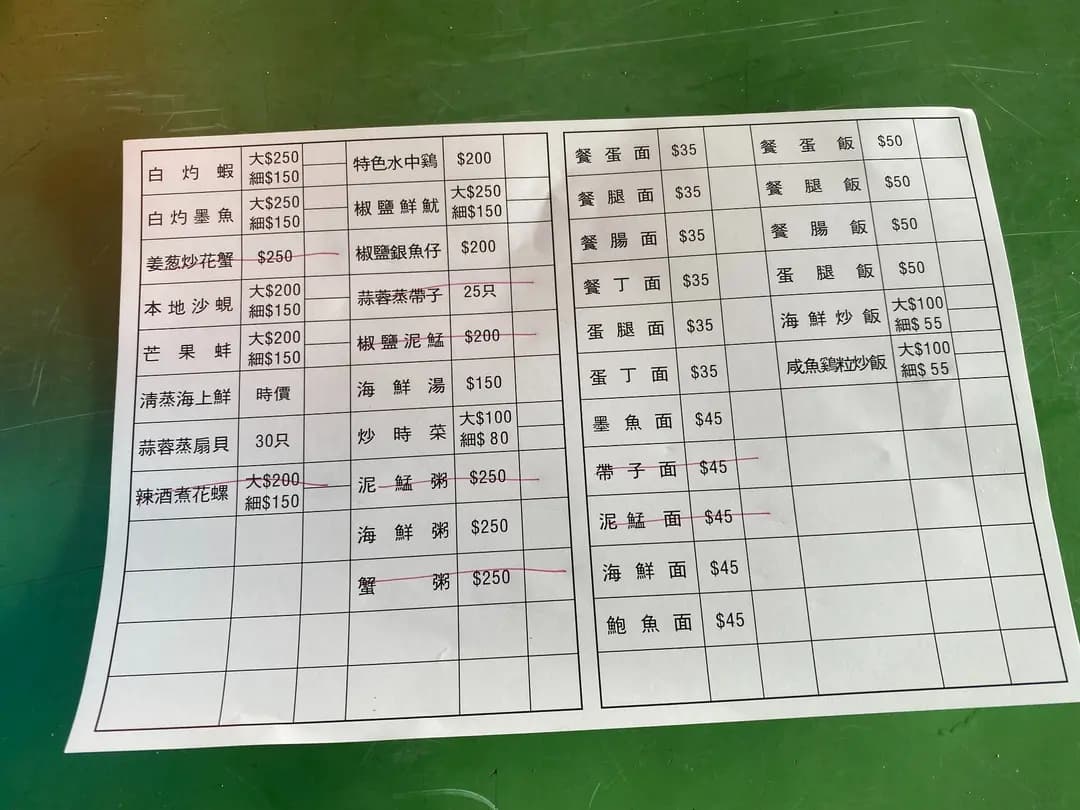 白灼蝦 大$250
細$150
白灼墨魚 大$250
細$150
姜葱炒花蟹 $250
本地沙蜆 大$200
細$150
芒果蚌 大$200
細$150
清蒸海上鮮 時價
蒜蓉蒸扇貝 30只
辣酒煮花螺 大$200
細$150
特色水中鷄 $200
椒鹽鮮魷 大$250
細$150
椒鹽銀魚仔 $200
蒜蓉蒸帶子 25只
椒鹽泥鯭 $200
海鮮湯 $150
炒時菜 大$100
細$ 80
泥鯭粥 $250
海鮮粥 $250
蟹粥 $250
餐蛋面 $35
餐腿面 $35
餐腸面 $35
餐丁面 $35
蛋腿面 $35
蛋丁面 $35
墨魚面 $45
帶子面 $45
泥鯭面 $45
海鮮面 $45
鮑魚面 $45
餐蛋飯 $50
餐腿飯 $50
餐腸飯 $50
蛋腿飯 $50
海鮮炒飯 大$100
細$ 55
咸魚鷄粒炒飯 大$100
細$ 55